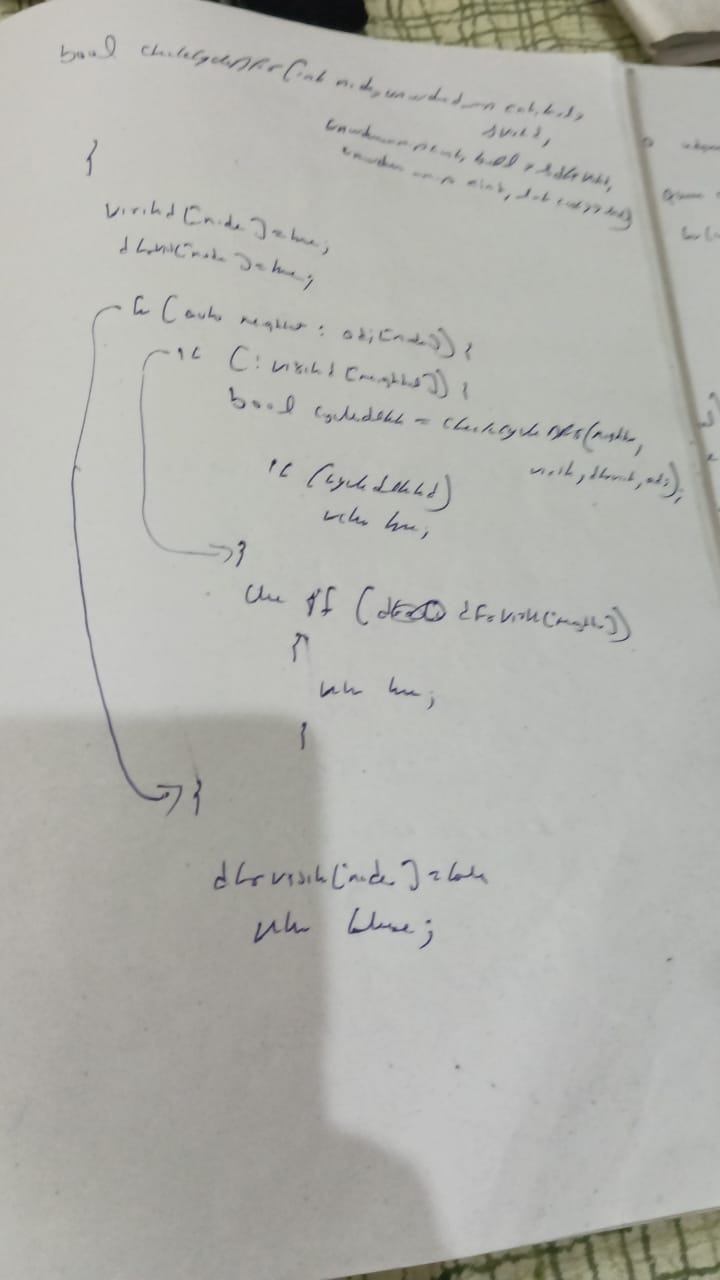 bool checkCycleDFS(int node, unordered_map<int, bool>
&visited,
unordered_map<int, bool> &dfsVisited,
unordered_map<int, list<int>> &adj)
{
visited[node] = true;
dfsVisited[node] = true;
for (auto neighbour : adj[node]) {
if (!visited[neighbour]) {
bool cycleDetected = checkCycleDFS(neighbour,
visited, dfsVisited, adj);
if (cycleDetected)
return true;
}
else if (dfsVisited[neighbour])
{
return true;
}
}
dfsVisited[node] = false
return false;